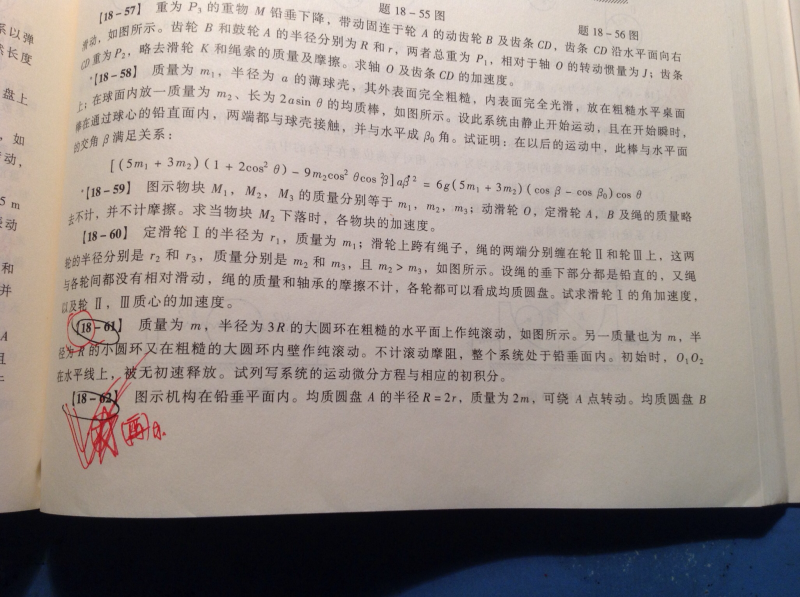 系以弹
长度
盘上
如
动，
5 m
动
和
并
A
且
题 18-55 图
题 18-56 图
【18-57】 重为 P₃ 的重物 M 铅垂下降，带动固连于轮 A 的动齿轮 B 及齿条 CD，齿条 CD 沿水平面向右
滑动，如图所示。齿轮 B 和鼓轮 A 的半径分别为 R 和 r，两者总重为 P₁，相对于轴 O 的转动惯量为 J；齿条
CD 重为 P₂，略去滑轮 K 和绳索的质量及摩擦。求轴 O 及齿条 CD 的加速度。
*【18-58】 质量为 m₁，半径为 a 的薄球壳，其外表面完全粗糙，内表面完全光滑，放在粗糙水平桌面
上；在球面内放一质量为 m₂、长为 2asin θ 的均质棒，如图所示。设此系统由静止开始运动，且在开始瞬时，
棒在通过球心的铅直面内，两端都与球壳接触，并与水平成 β₀ 角。试证明：在以后的运动中，此棒与水平面
的交角 β 满足关系：
[(5m₁ + 3m₂)(1 + 2cos² θ) - 9m₂cos² θcos² β]aβ̇² = 6g(5m₁ + 3m₂)(cos β - cos β₀)cos θ
*【18-59】 图示物块 M₁，M₂，M₃ 的质量分别等于 m₁，m₂，m₃；动滑轮 O，定滑轮 A，B 及绳的质量略
去不计，并不计摩擦。求当物块 M₂ 下落时，各物块的加速度。
【18-60】 定滑轮 Ⅰ 的半径为 r₁，质量为 m₁；滑轮上跨有绳子，绳的两端分别缠在轮 Ⅱ 和轮 Ⅲ 上，这两
轮的半径分别是 r₂ 和 r₃，质量分别是 m₂ 和 m₃，且 m₂ > m₃，如图所示。设绳的垂下部分都是铅直的，又绳
与各轮间都没有相对滑动，绳的质量和轴承的摩擦不计，各轮都可以看成均质圆盘。试求滑轮 Ⅰ 的角加速度，
以及轮 Ⅱ，Ⅲ 质心的加速度。
【18-61】 质量为 m，半径为 3R 的大圆环在粗糙的水平面上作纯滚动，如图所示。另一质量也为 m，半
径为 R 的小圆环又在粗糙的大圆环内壁作纯滚动。不计滚动摩阻，整个系统处于铅垂面内。初始时，O₁O₂
在水平线上，被无初速释放。试列写系统的运动微分方程与相应的初积分。
【18-62】 图示机构在铅垂平面内。均质圆盘 A 的半径 R = 2r，质量为 2m，可绕 A 点转动。均质圆盘 B